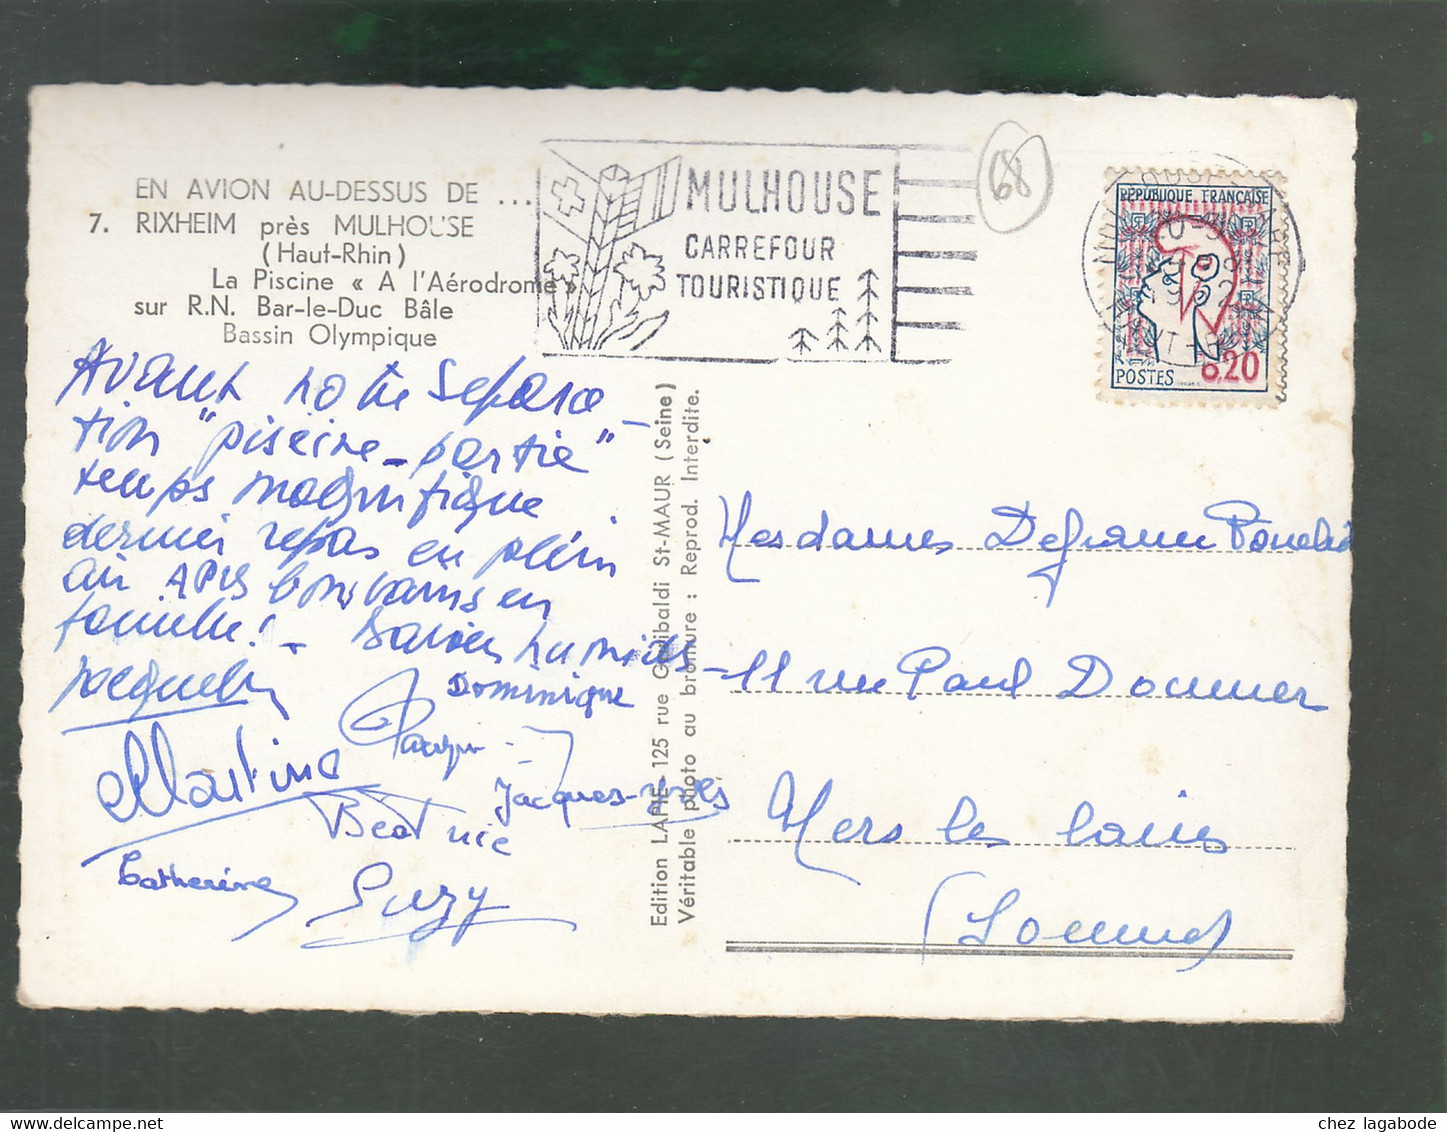 EN AVION AU-DESSUS DE ...
7. RIXHEIM près MULHOUSE
(Haut-Rhin)
La Piscine « A l'Aérodrome »
sur R.N. Bar-le-Duc Bâle
Bassin Olympique
MULHOUSE
CARREFOUR
TOURISTIQUE
68
RÉPUBLIQUE FRANÇAISE
POSTES 0,20
Avant notre separa-
tion "piscine-partie"
temps magnifique
dernier repas en plein
air APRS bons bains en
famille! - Baisers humides -
Jacqueline
Dominique
Martine
Jacques-Yves
Béatrice
Catherine
Suzy
Edition LAPIE - 125 rue Garibaldi St-MAUR (Seine)
Véritable photo au bromure : Reprod. Interdite.
Mesdames
11 rue Paul Doumer
Mers les bains
(Somme)
chez lagabode